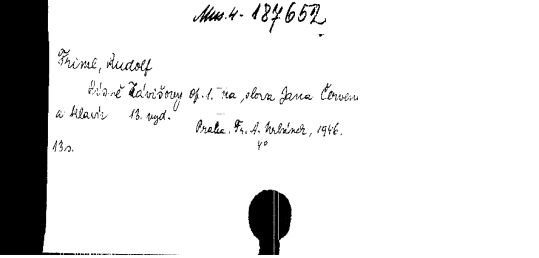 Mus.4-187652
Friml, Rudolf
Písně Závišovy op. 1. na slova Jana Červen
a klavír 13. vyd.
Praha. Fr. A. Urbánek, 1946.
13 s. 4°